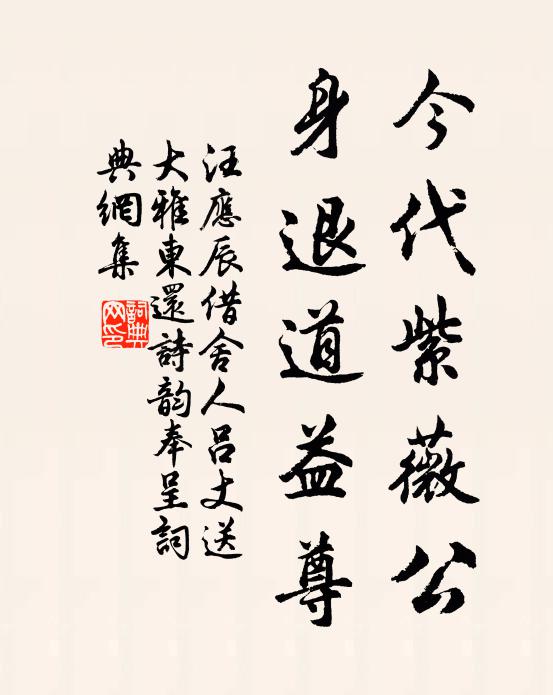 今代紫薇公
身退道益尊
汪應辰借舍人呂丈送
大雅東還詩韵奉呈詞
典網集
詞典
网印